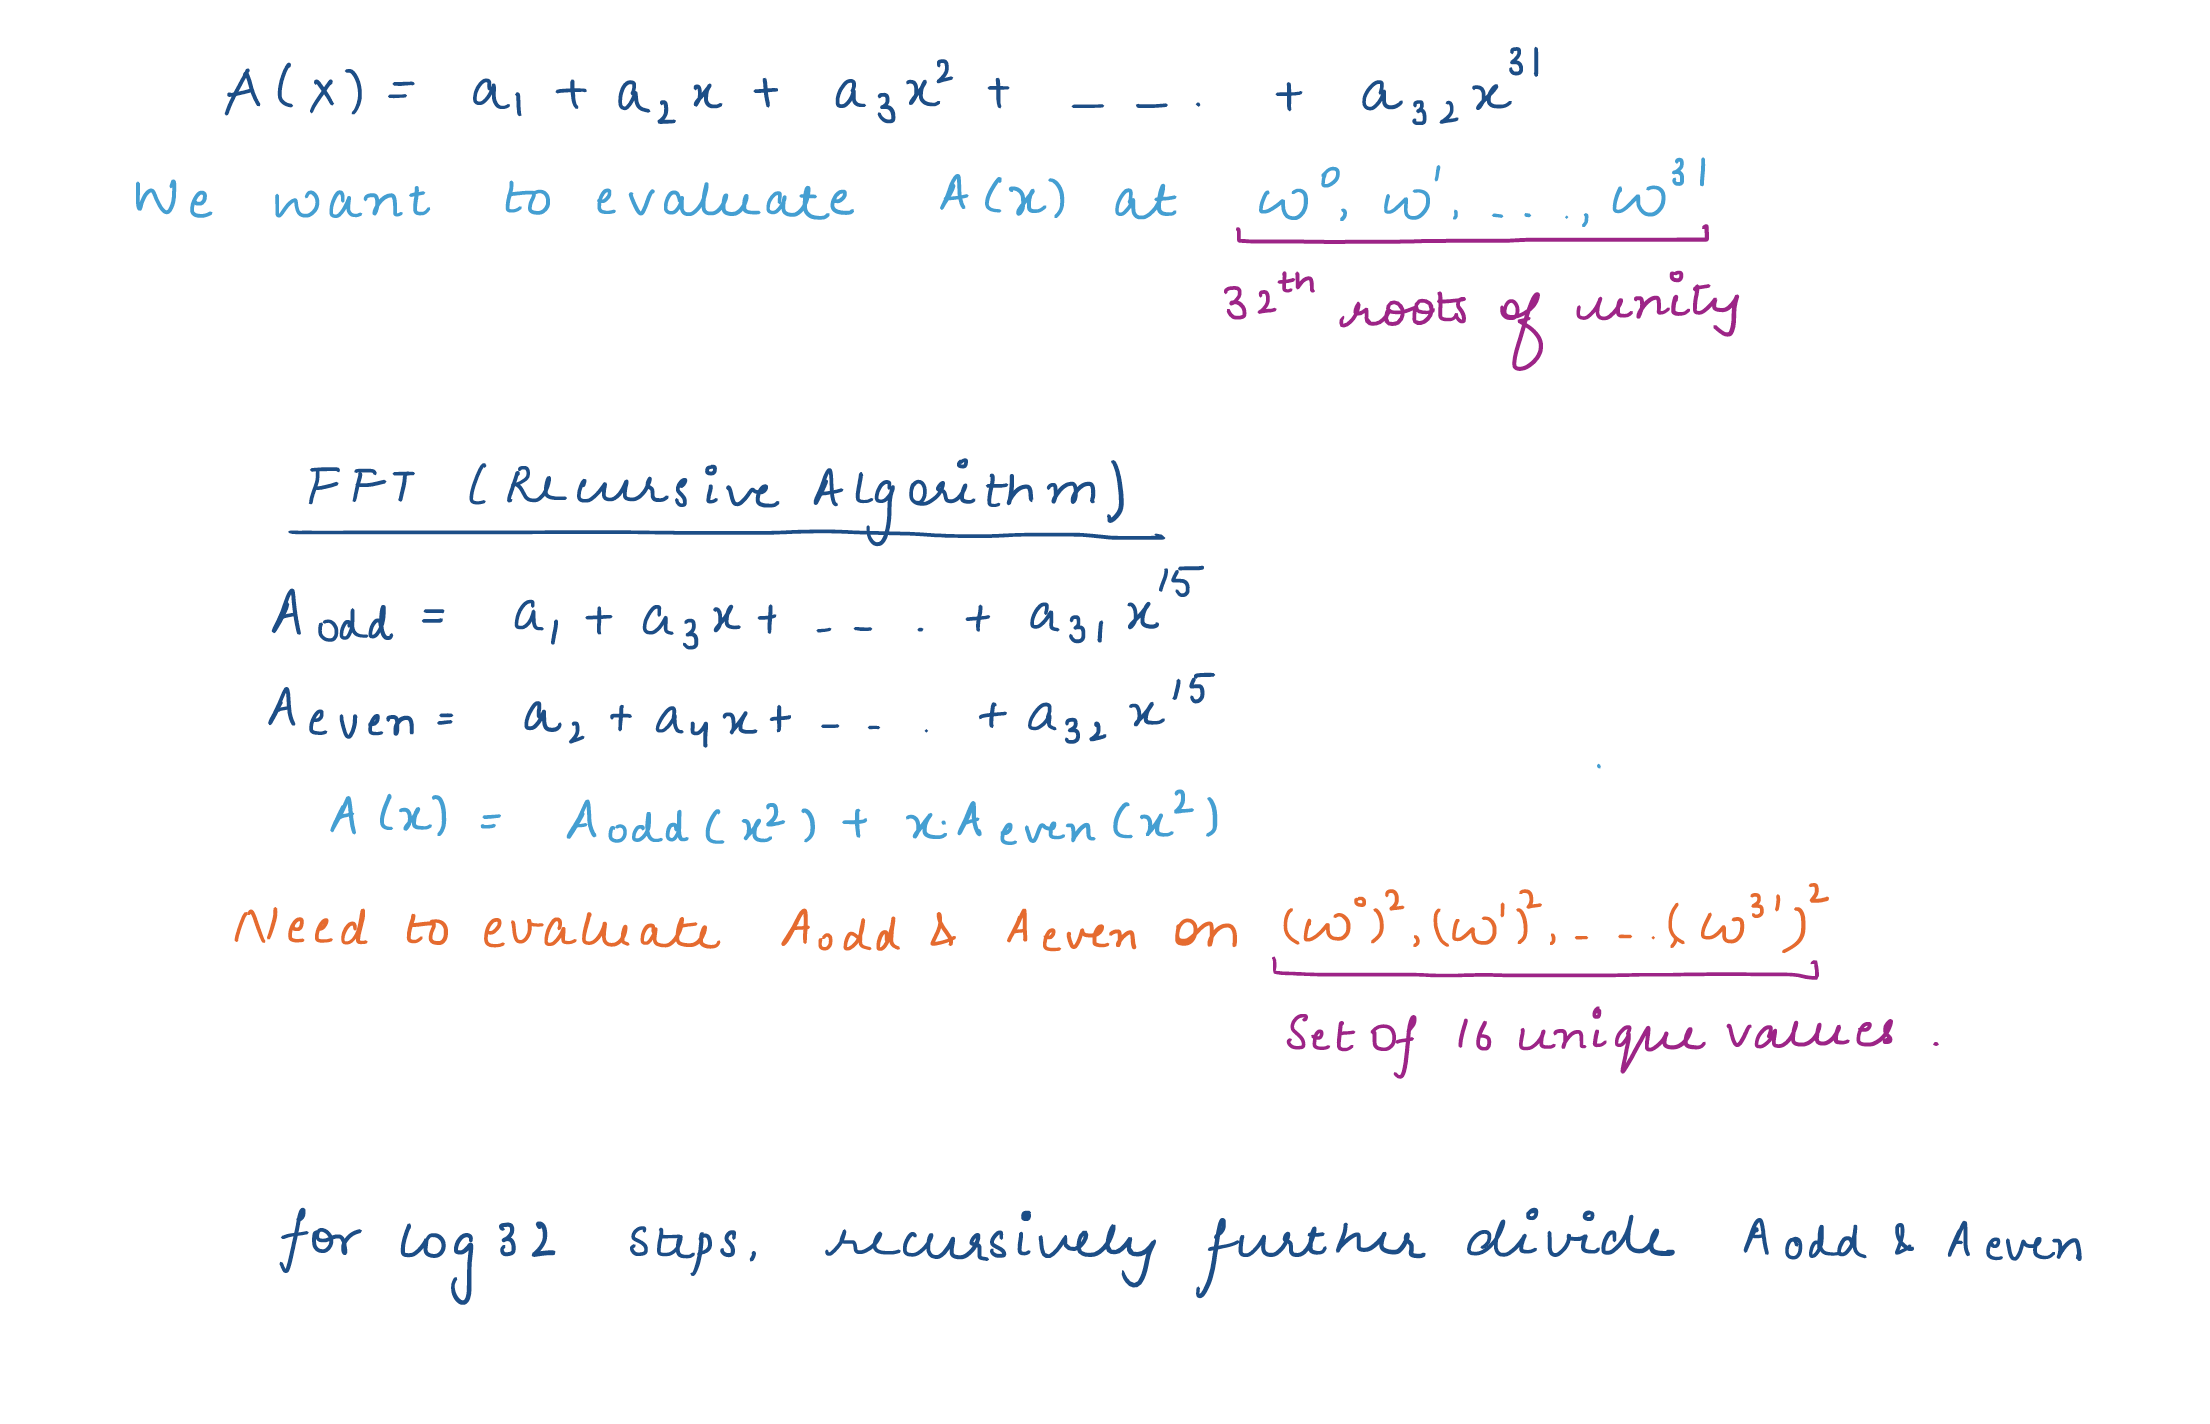 A(x) = a₁ + a₂x + a₃x² + - - . + a₃₂x³¹
We want to evaluate A(x) at ω⁰, ω¹, - - . ., ω³¹
32ᵗʰ roots of unity
FFT (Recursive Algorithm)
A odd = a₁ + a₃x + - - . + a₃₁x¹⁵
A even = a₂ + a₄x + - - . + a₃₂x¹⁵
A(x) = A odd (x²) + x·A even (x²)
Need to evaluate A odd & A even on (ω⁰)², (ω¹)², - - . (ω³¹)²
Set of 16 unique values .
for log 32 steps, recursively further divide A odd & A even